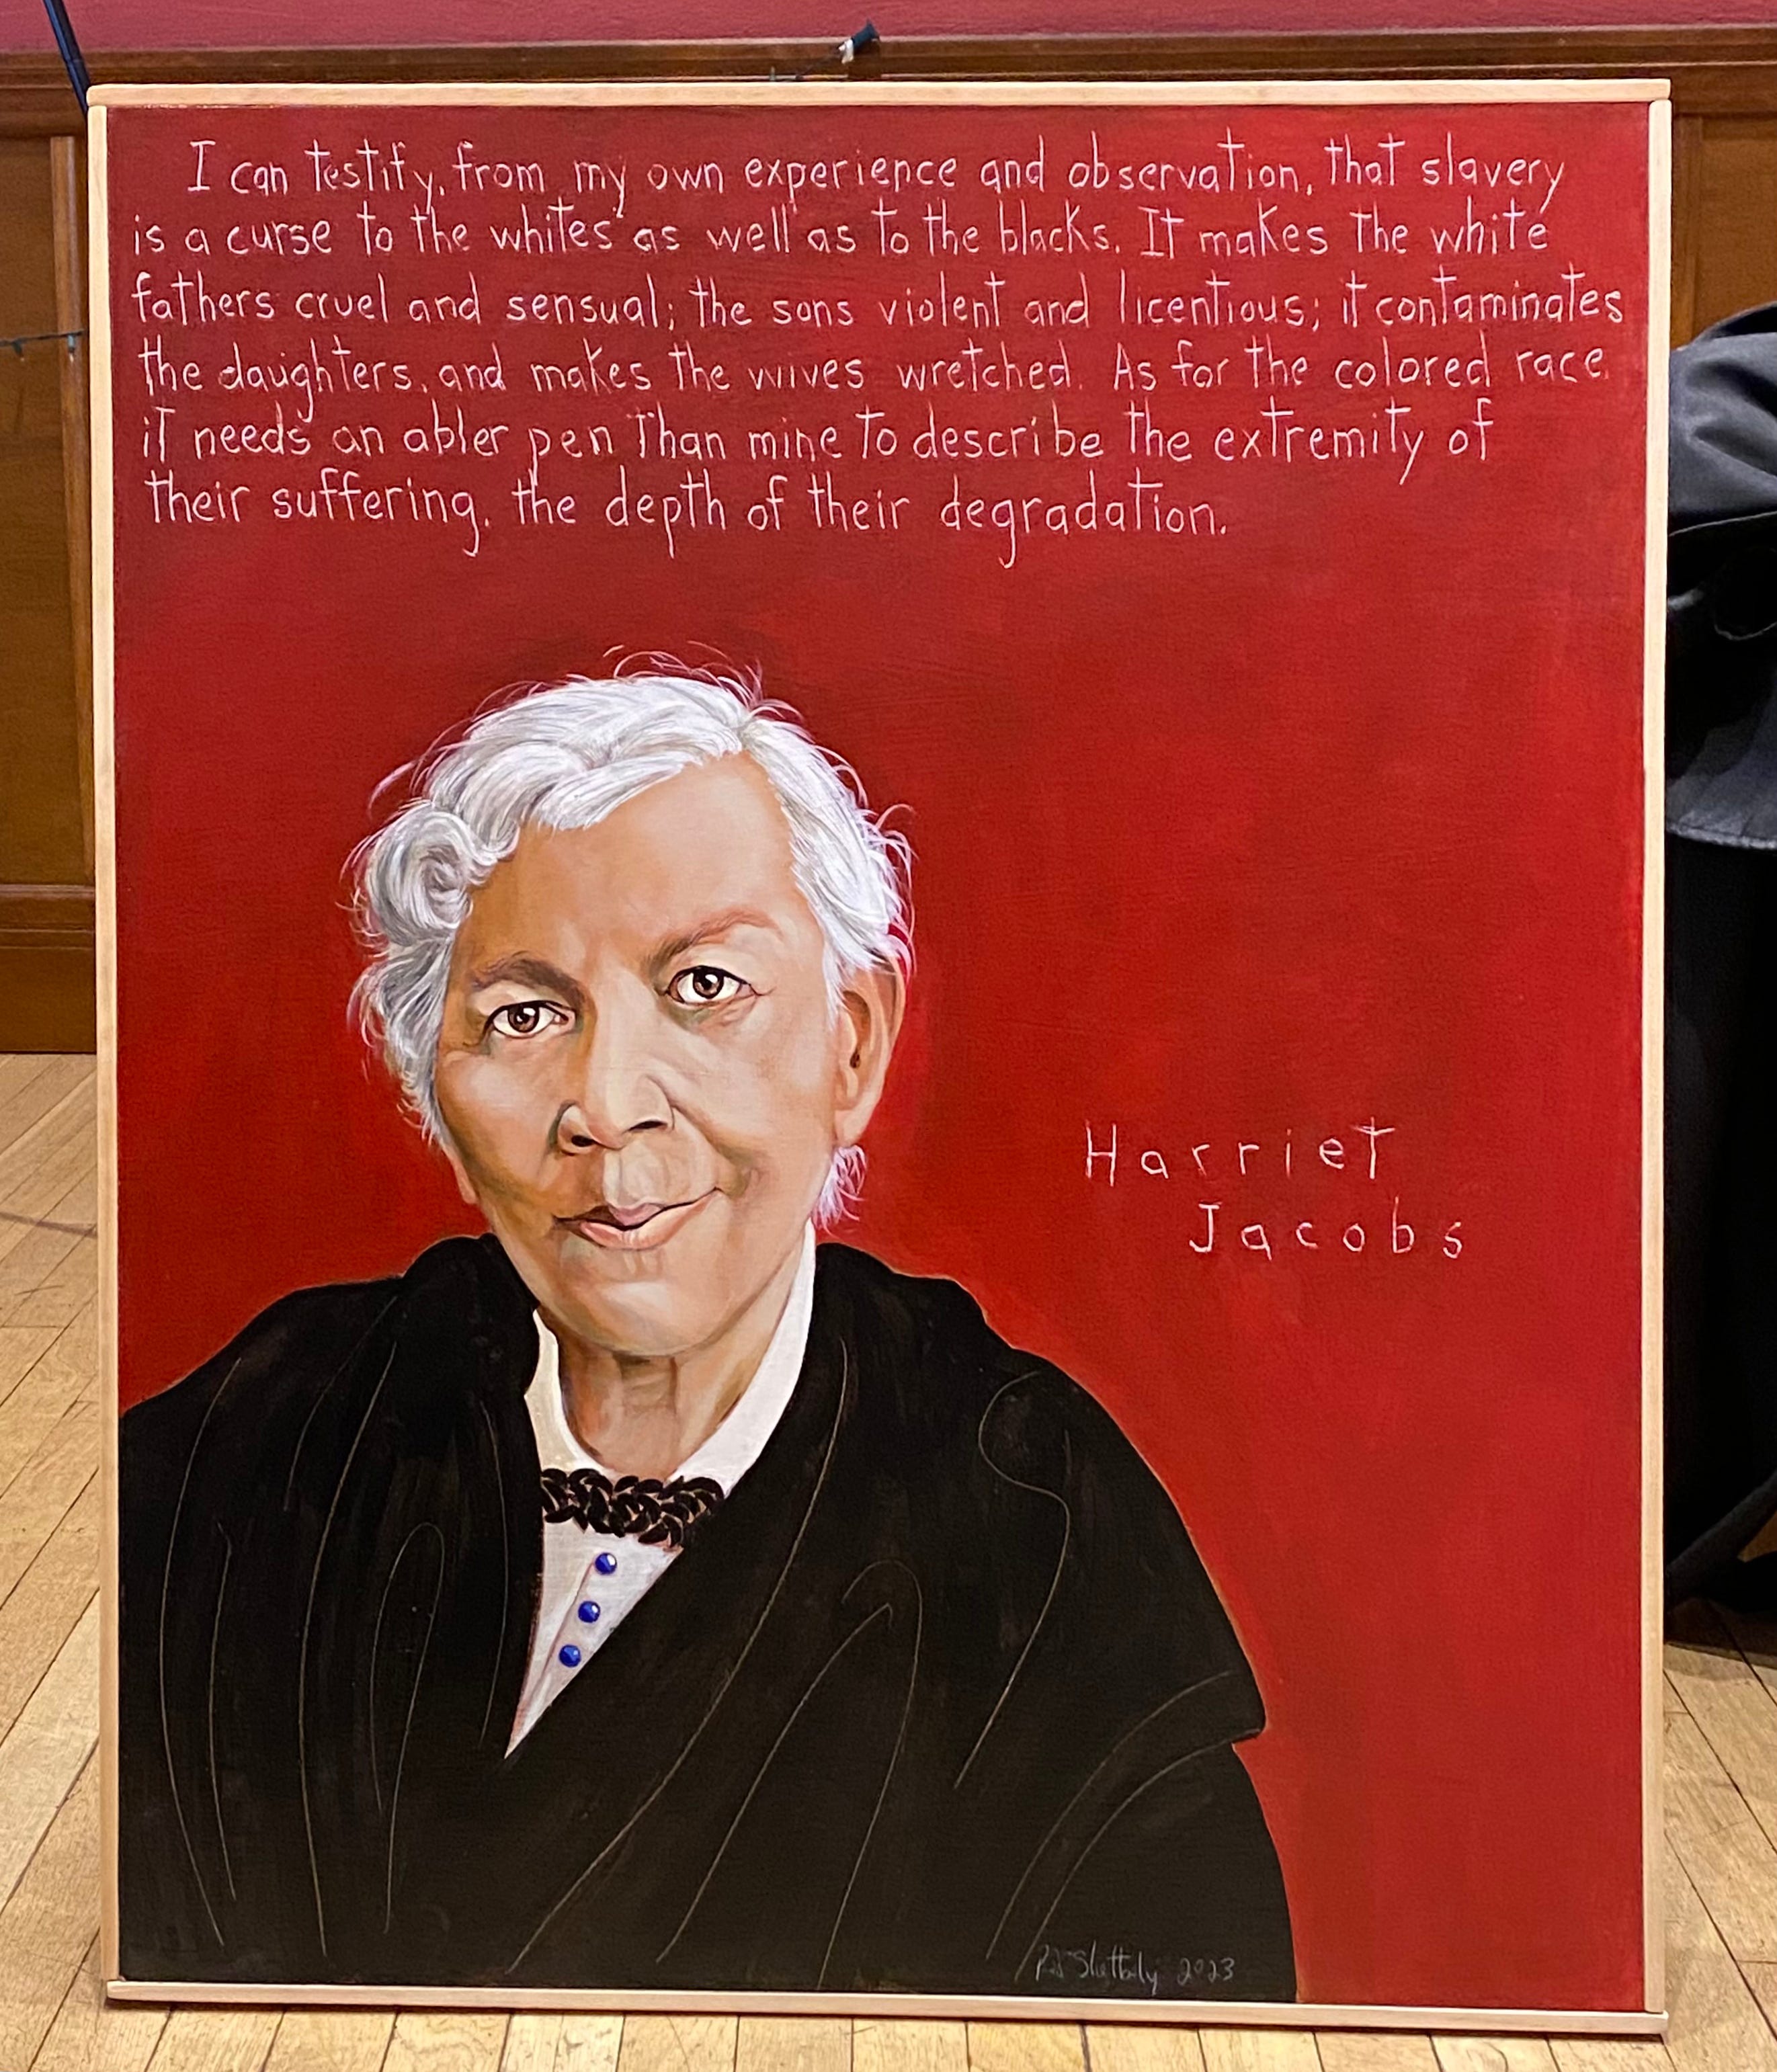 I can testify, from my own experience and observation, that slavery
is a curse to the whites as well as to the blacks. It makes the white
fathers cruel and sensual; the sons violent and licentious; it contaminates
the daughters, and makes the wives wretched. As for the colored race,
it needs an abler pen than mine to describe the extremity of
their suffering, the depth of their degradation.
Harriet
Jacobs
2023